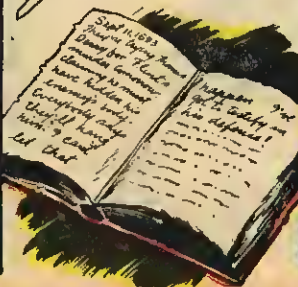 Sept 11,
They're trying
Denny for Flint's
murder tomorrow
claiming he must
have hidden his
enemy's body
Everybody says
they'll hang
him. I can't
let that
happen I've
got to testify in
his defense!